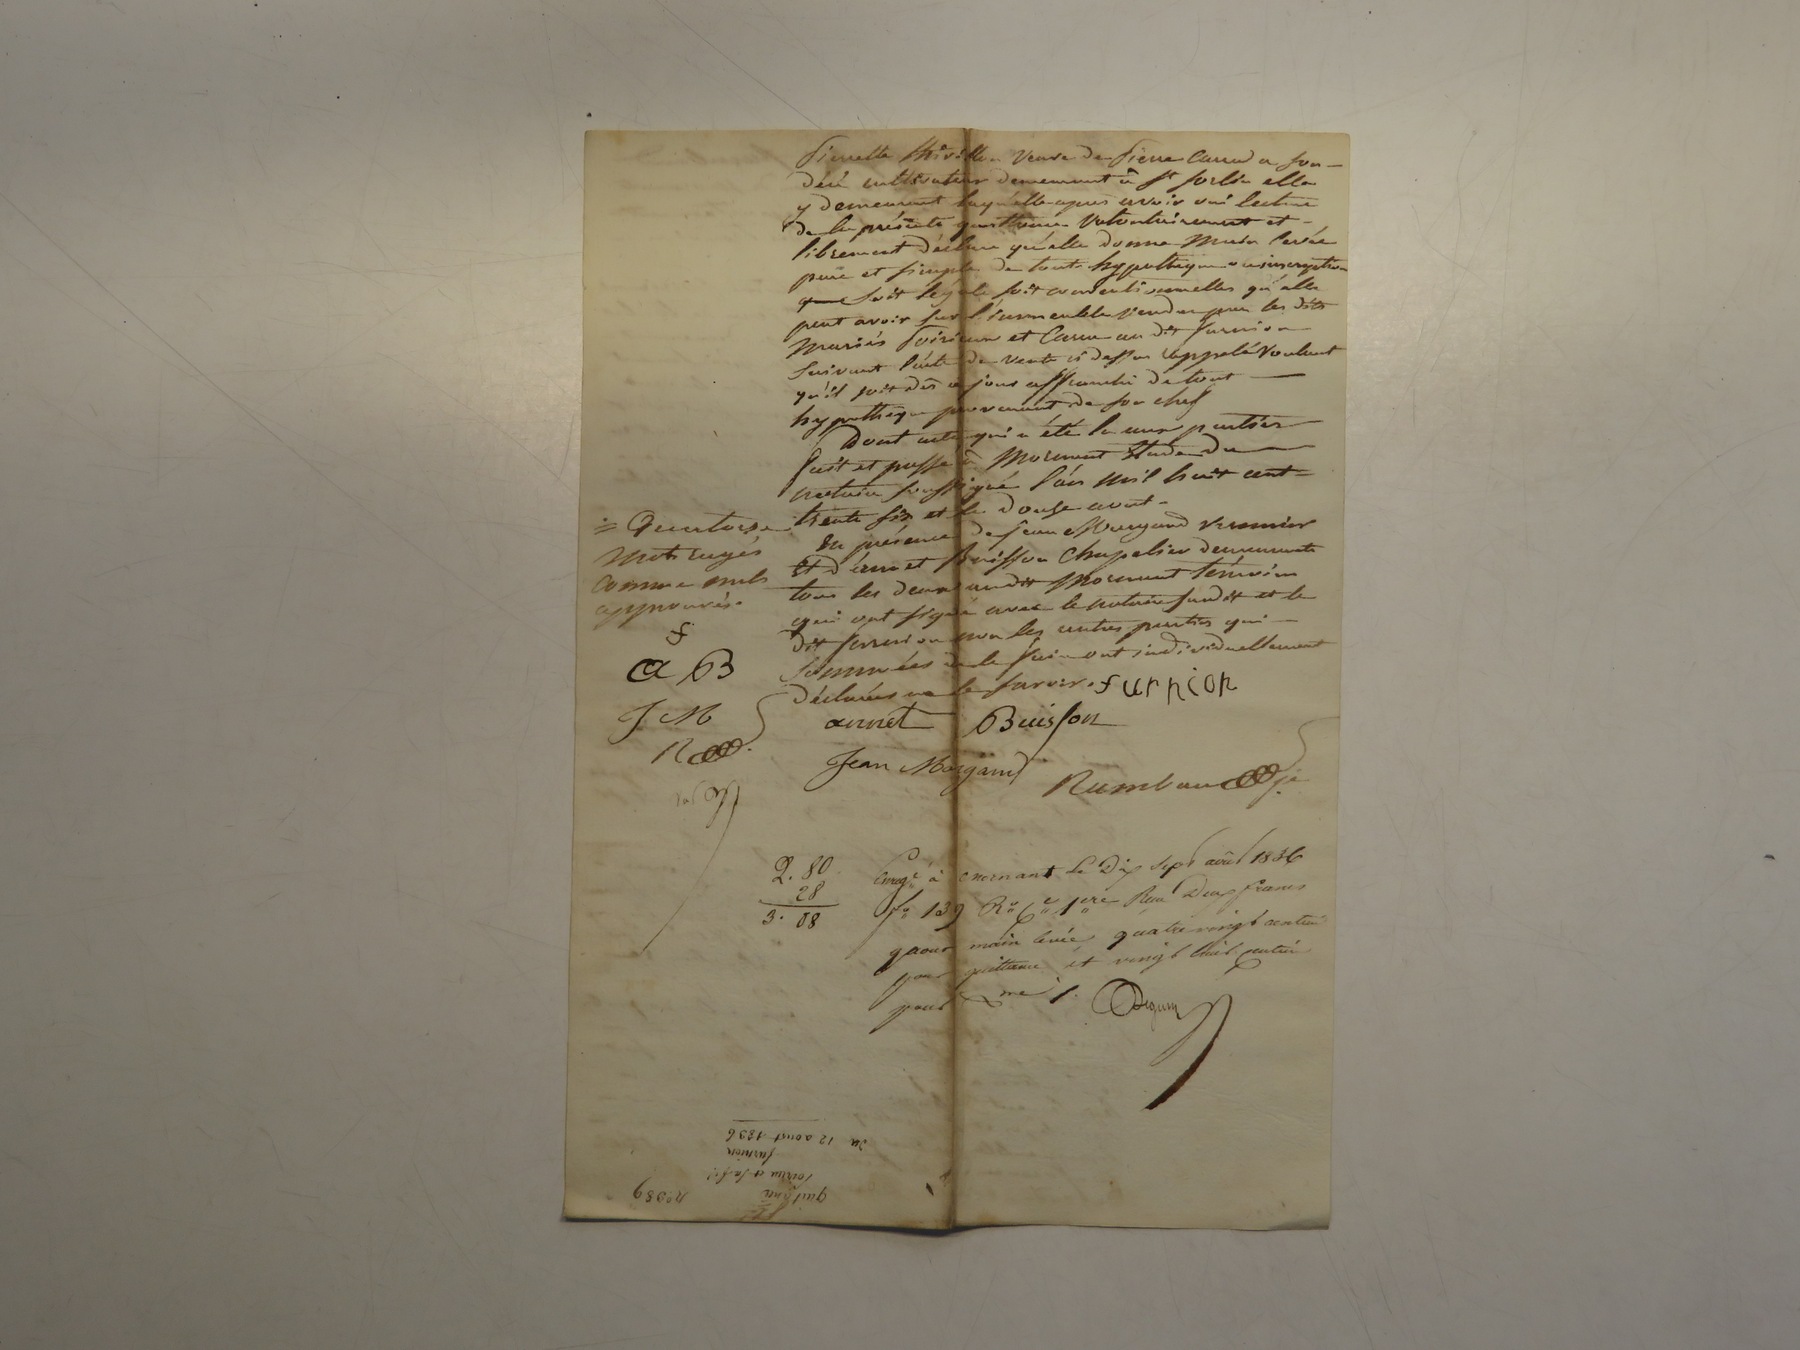 Pierrette Thivillon veuve de Pierre Carra a son
décè cultivateur demeurant à St Sorlin elle
y demeurant laquelle apres avoir oui lecture
de la présente quittance volontairement et
librement déclare qu'elle donne main levée
pure et simple de tout hypotheque ou inscription
que soit légale soit conventionnelles qu'elle
peut avoir sur l'immeuble vendu par les dits
mariés Soirieux et Carra au dit Furnion
suivant l'acte de vente ci dessu rappelé voulant
qu'il soit dès a jour affranchi de tout
hypotheque provenant de son chef
Dont acte qui a été lu aux parties
fait et passé à Mornant Etude du
notaire soussigné l'an mil huit cent
trente six et le douze aout.
En présence de Jean Morgand vermier
et d'annet Buisson chapelier demeurants
tous les deux audit Mornant témoins
qui ont signé avec le notaire susdit et le
dit furnion non les autres parties qui
sommées de le faire ont individuellement
déclarées ne le savoir. furnion
annet Buisson
Jean Morgand
Rambaud
= Quatorze
mots rayés
comme nuls
approuvés.
f
a B
J M
R
2. 80
28
3. 08
Enregé à mornant le Dix sept août 1836
fo 139 Ro Ce 1ere Reçu Deux francs
pour main levée, quatre vingt centimes
pour quittance et vingt huit centimes
pour Xme /.
quittance
furnion
du 12 aout 1836
no 389